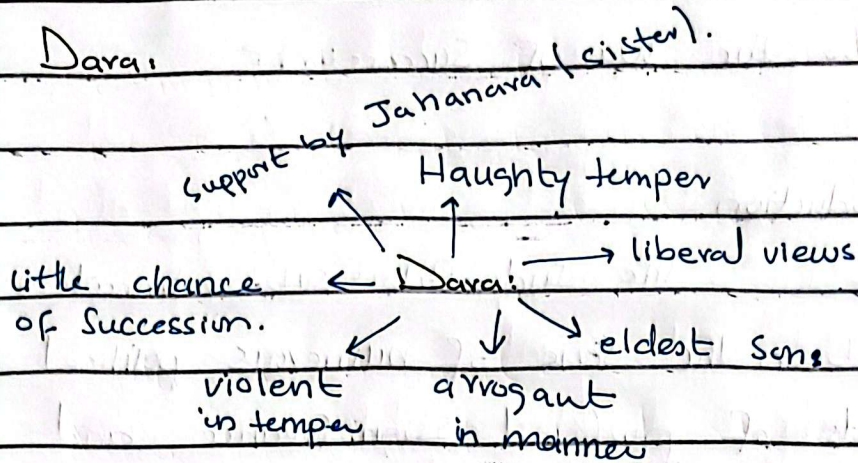 Dara:
support by Jahanara (sister).
Haughty temper
liberal views
little chance
of Succession.
Dara:
eldest son:
violent
in temper
arrogant
in manner